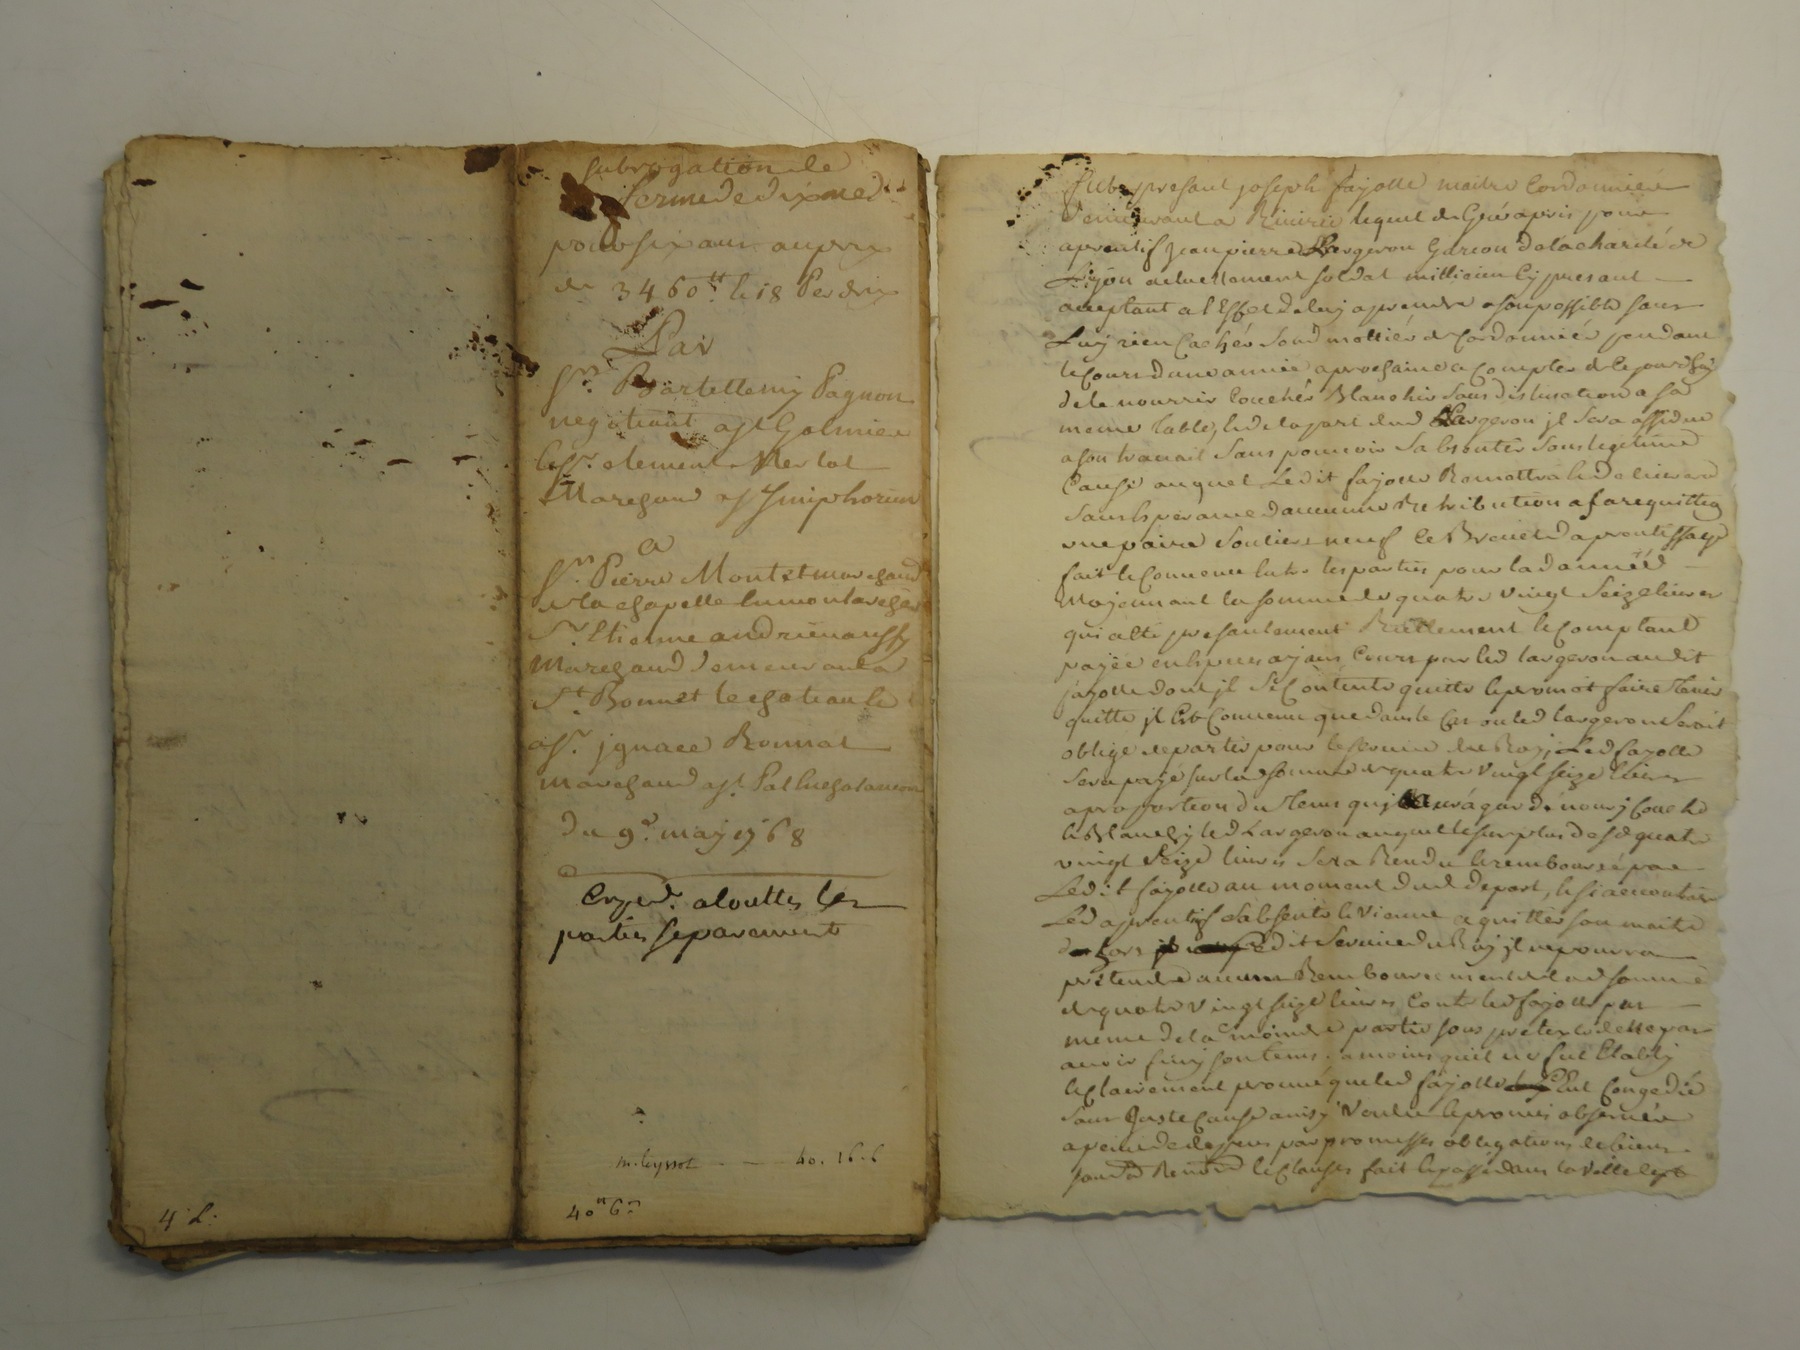 subrogation de
ferme de dixmes
pour six ans au prix
de 3460.tt & 18 Perdrix
Par
Sr. Bartellemy Pagnon
negotiant a St Galmier
& Sr. clement Merlat
Marchand a St Simphorien
a
Sr. Pierre Montet marchand
de la chapelle
Sr. Etienne
Marchand demeurant a
St. Bonnet le chateau &
a Sr. jgnace Bonnat
marchand a St. Pal
du 9e. may 1768
Exped. a touttes les
parties separement
m. teyssot - - 40. 16. 6
40tt 6s
4. L.
Fut present joseph fayolle maitre Cordonnier
demeurant a lequel de Gré a pris pour
aprentif jean pierre Largeron Garcon de la charité de
Lyon actuellement soldat millicien cy present
acceptant a l'Effet de luy aprendre a son possible sans
Luy rien Cacher Sond mettier de Cordonnier pendant
le Cours d'une année aprochaine a Compter de ce jourdhuy
de le nourrir Coucher Blanchir Sans distination a sa
meme table, & de la part dud Largeron jl Sera assidue
a son travail Sans pouvoir Sabsenter Sans legitime
Cause auquel Ledit fayolle Remettra
sans Esperance d'aucune Retribution
une paire Souliers neuf le Brevet d'aprentissage
fait & Convenu Entre les parties pour lad année
Moyennant la somme de quatre vingt Seize livres
qui a été presentement Reellement & Comptant
payée en Especes ayant Cours par led largeron audit
fayolle dont jl Se Contente quitte & promet faire Tenir
quitte jl Est Convenu que dans le Cas ou led largeron Serait
obligé de partir pour le service du Roy, Led fayolle
Sera payé sur lad somme de quatre Vingt seize livres
a proportion du Tems qu'jl aura gardé nourry Couché
& Blanchy led Largeron auquel le surplus desd quatre
vingt Seize livres Sera Rendu & remboursé par
Ledit fayolle au moment dud depart, & si au contraire
Led aprentif s'absente & Vienne a quitter son maitre
hors dit Service du Roy jl ne pourra
pretendre aucun Remboursement de lad somme
de quatre Vingt seize livres Contre led fayolle pas
meme de la moindre partie sous pretexte de ne pas
avoir finy son tems, a moins qu'il ne fut Etably
& Clairement prouvé que led fayolle l'Eut Congedié
Sans Juste Cause ainsy Voulu & promis observer
a peine de depens par promesses obligations de biens
soumd Renond & Clauses fait & passé dans la Ville de